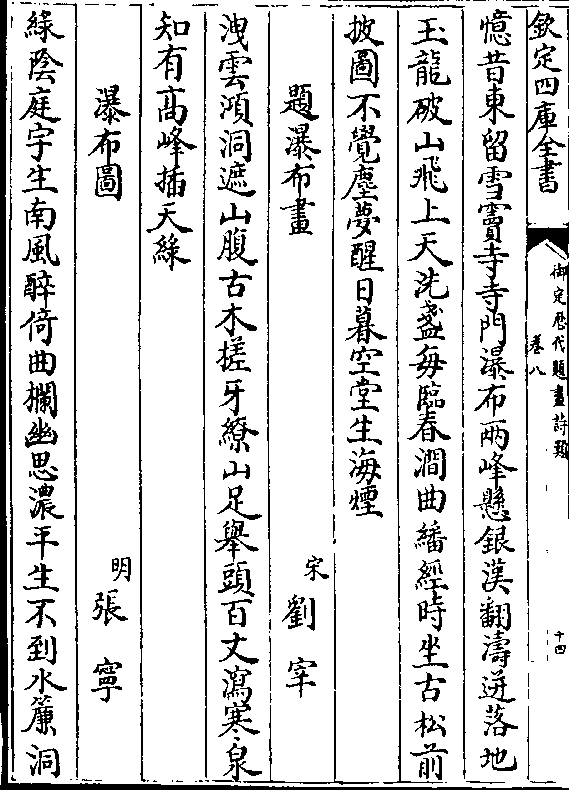 欽定四庫全書
御定歷代題畫詩類
卷八
十四
憶昔東留雪竇寺寺門瀑布兩峰懸銀漢翻濤迸落地
玉龍破山飛上天洗盞每臨春澗曲繙經時坐古松前
披圖不覺塵夢醒日暮空堂生海煙
題瀑布畫
宋劉宰
洩雲澒洞遮山腹古木搓牙繚山足舉頭百丈瀉寒泉
知有高峰插天綠
瀑布圖
明張寧
綠陰庭宇生南風醉倚曲欄幽思濃平生不到水簾洞